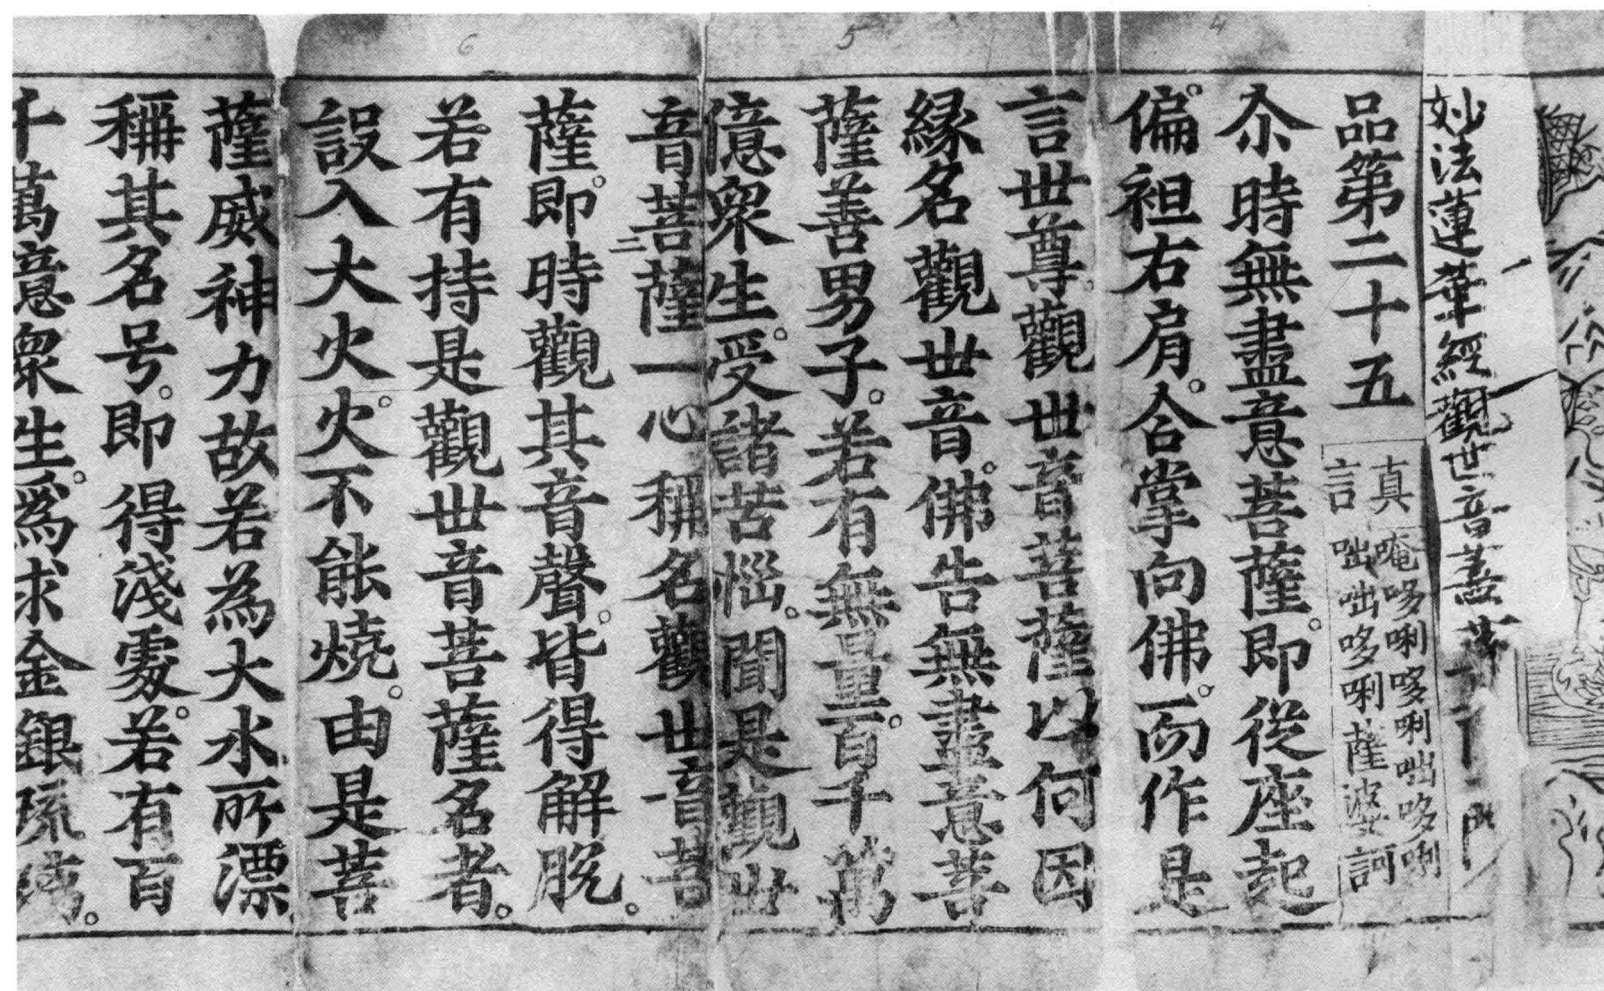 妙法蓮華經觀世音菩薩
門
品第二十五
真言
唵哆唎哆唎咄哆唎
咄咄哆唎薩婆訶
尒時無盡意菩薩。即從座起
偏。袒右肩。合掌向佛。而作是
言世尊。觀世音菩薩以何因
緣名觀世音。佛告無盡意菩
薩善男子。若有無量百。千萬
億衆生。受諸苦惱。聞是觀世
音菩薩一心稱名觀世音菩
二
薩。即時觀其音聲。皆得解脫。
若有持是觀世音菩薩名者。
設入大火。火不能燒。由是菩
薩威神力故若為大水所漂
稱其名号。即得淺處。若有百
千萬億衆生。為求金銀琉璃。
4
5
6